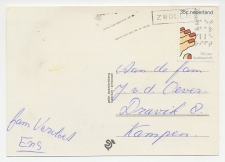 ZWOL
35c nederland
Aan de fam
J. v. d. Oever
Dravik 8
Kampen.
fam Verdoes
Ens